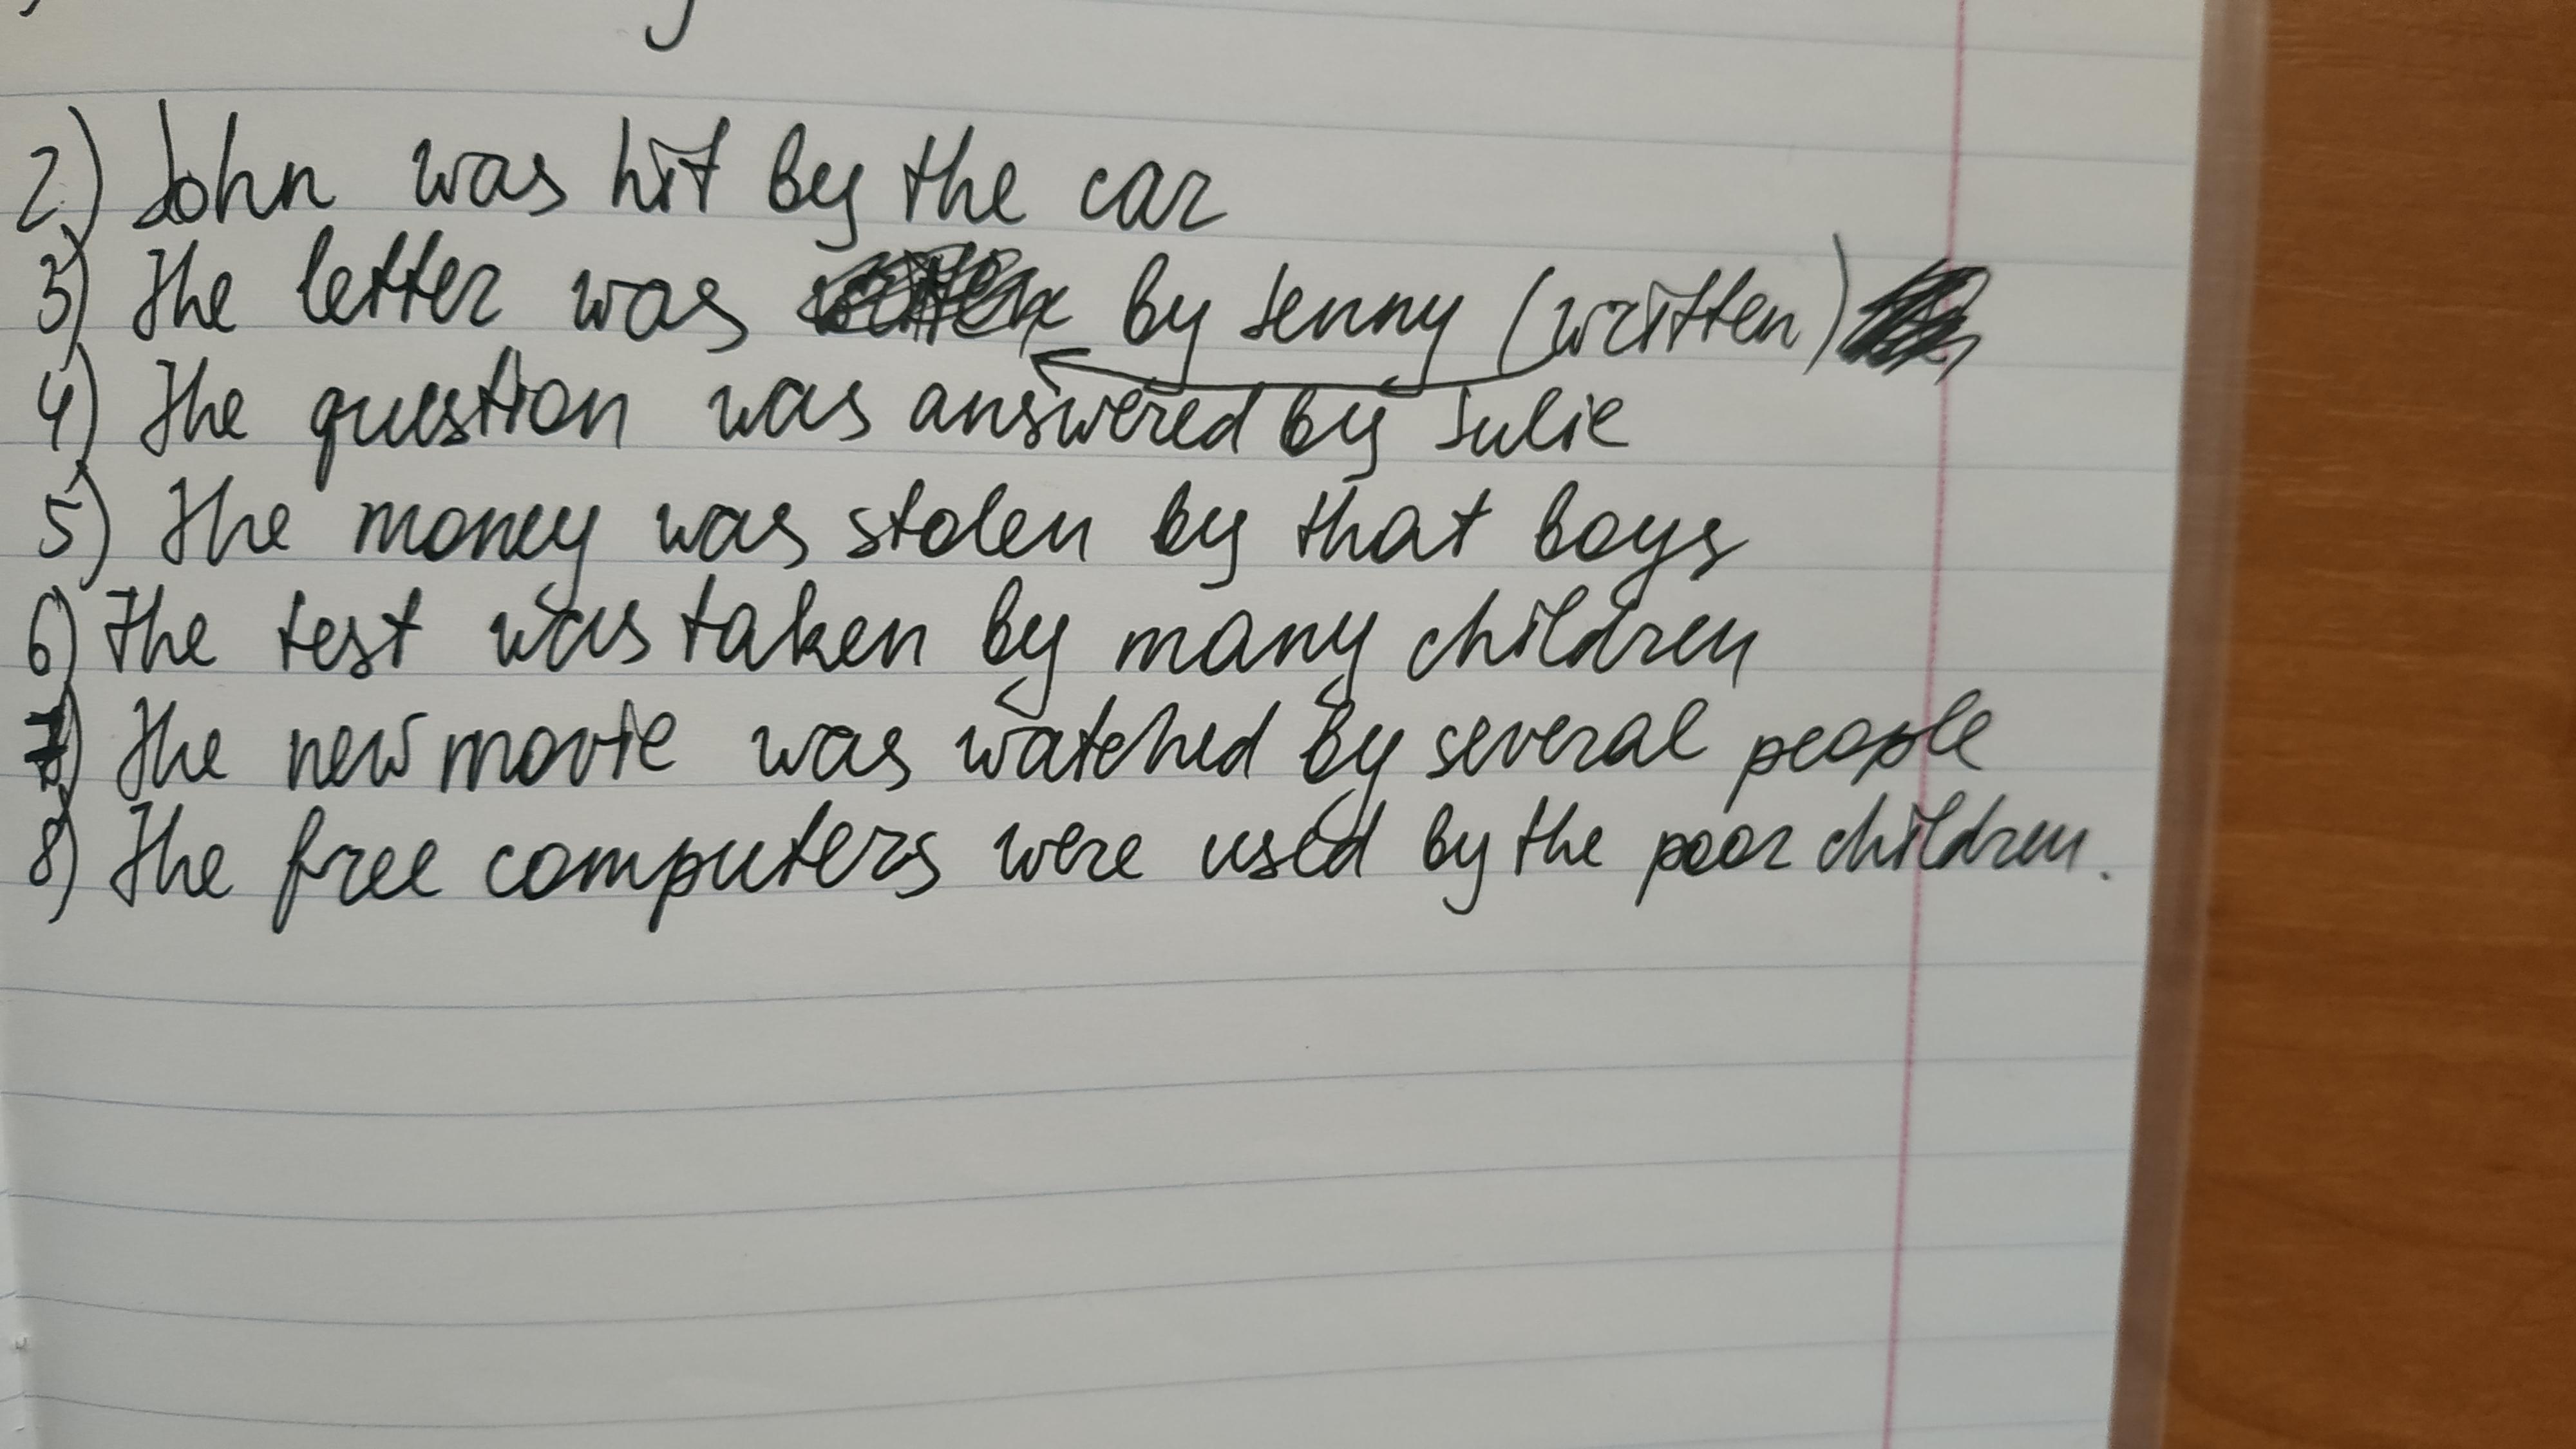 2) John was hit by the car
3) The letter was by Jenny (written)
4) The question was answered by Julie
5) The money was stolen by that boys
6) The test was taken by many children
7) The new movie was watched by several people
8) The free computers were used by the poor children.